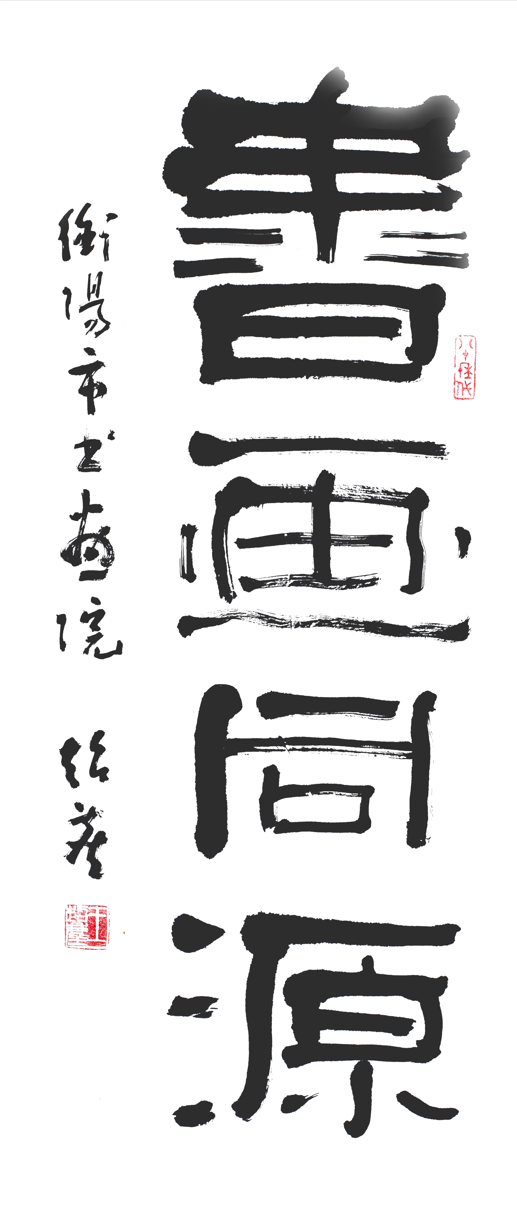 書画同源
衡陽市书畫院